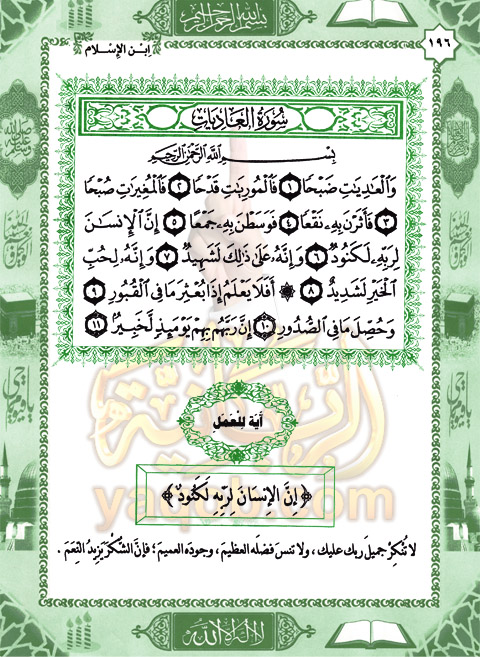 بسم الله الرحمن الرحيم
١٩٦
ابن الإسلام
سُورَةُ الْعَادِيَاتِ
بِسْمِ اللَّهِ الرَّحْمَٰنِ الرَّحِيمِ
وَالْعَادِيَاتِ ضَبْحًا ١ فَالْمُورِيَاتِ قَدْحًا ٢ فَالْمُغِيرَاتِ صُبْحًا
٣ فَأَثَرْنَ بِهِ نَقْعًا ٤ فَوَسَطْنَ بِهِ جَمْعًا ٥ إِنَّ الْإِنسَانَ
لِرَبِّهِ لَكَنُودٌ ٦ وَإِنَّهُ عَلَىٰ ذَٰلِكَ لَشَهِيدٌ ٧ وَإِنَّهُ لِحُبِّ
الْخَيْرِ لَشَدِيدٌ ٨ ۞ أَفَلَا يَعْلَمُ إِذَا بُعْثِرَ مَا فِي الْقُبُورِ ٩
وَحُصِّلَ مَا فِي الصُّدُورِ ١٠ إِنَّ رَبَّهُم بِهِمْ يَوْمَئِذٍ لَّخَبِيرٌ ١١
الربانية
آيَة لِلعَمَلِ
yaqob.com
﴿ إِنَّ الْإِنسَانَ لِرَبِّهِ لَكَنُودٌ ﴾
لا تُنْكِرْ جميلَ ربك عليك ، ولا تنسَ فضلَه العظيمَ ، وجودَه العميمَ ؛ فإنَّ الشُّكْرَ يَزِيدُ النِّعَمَ .
لا إله إلا الله